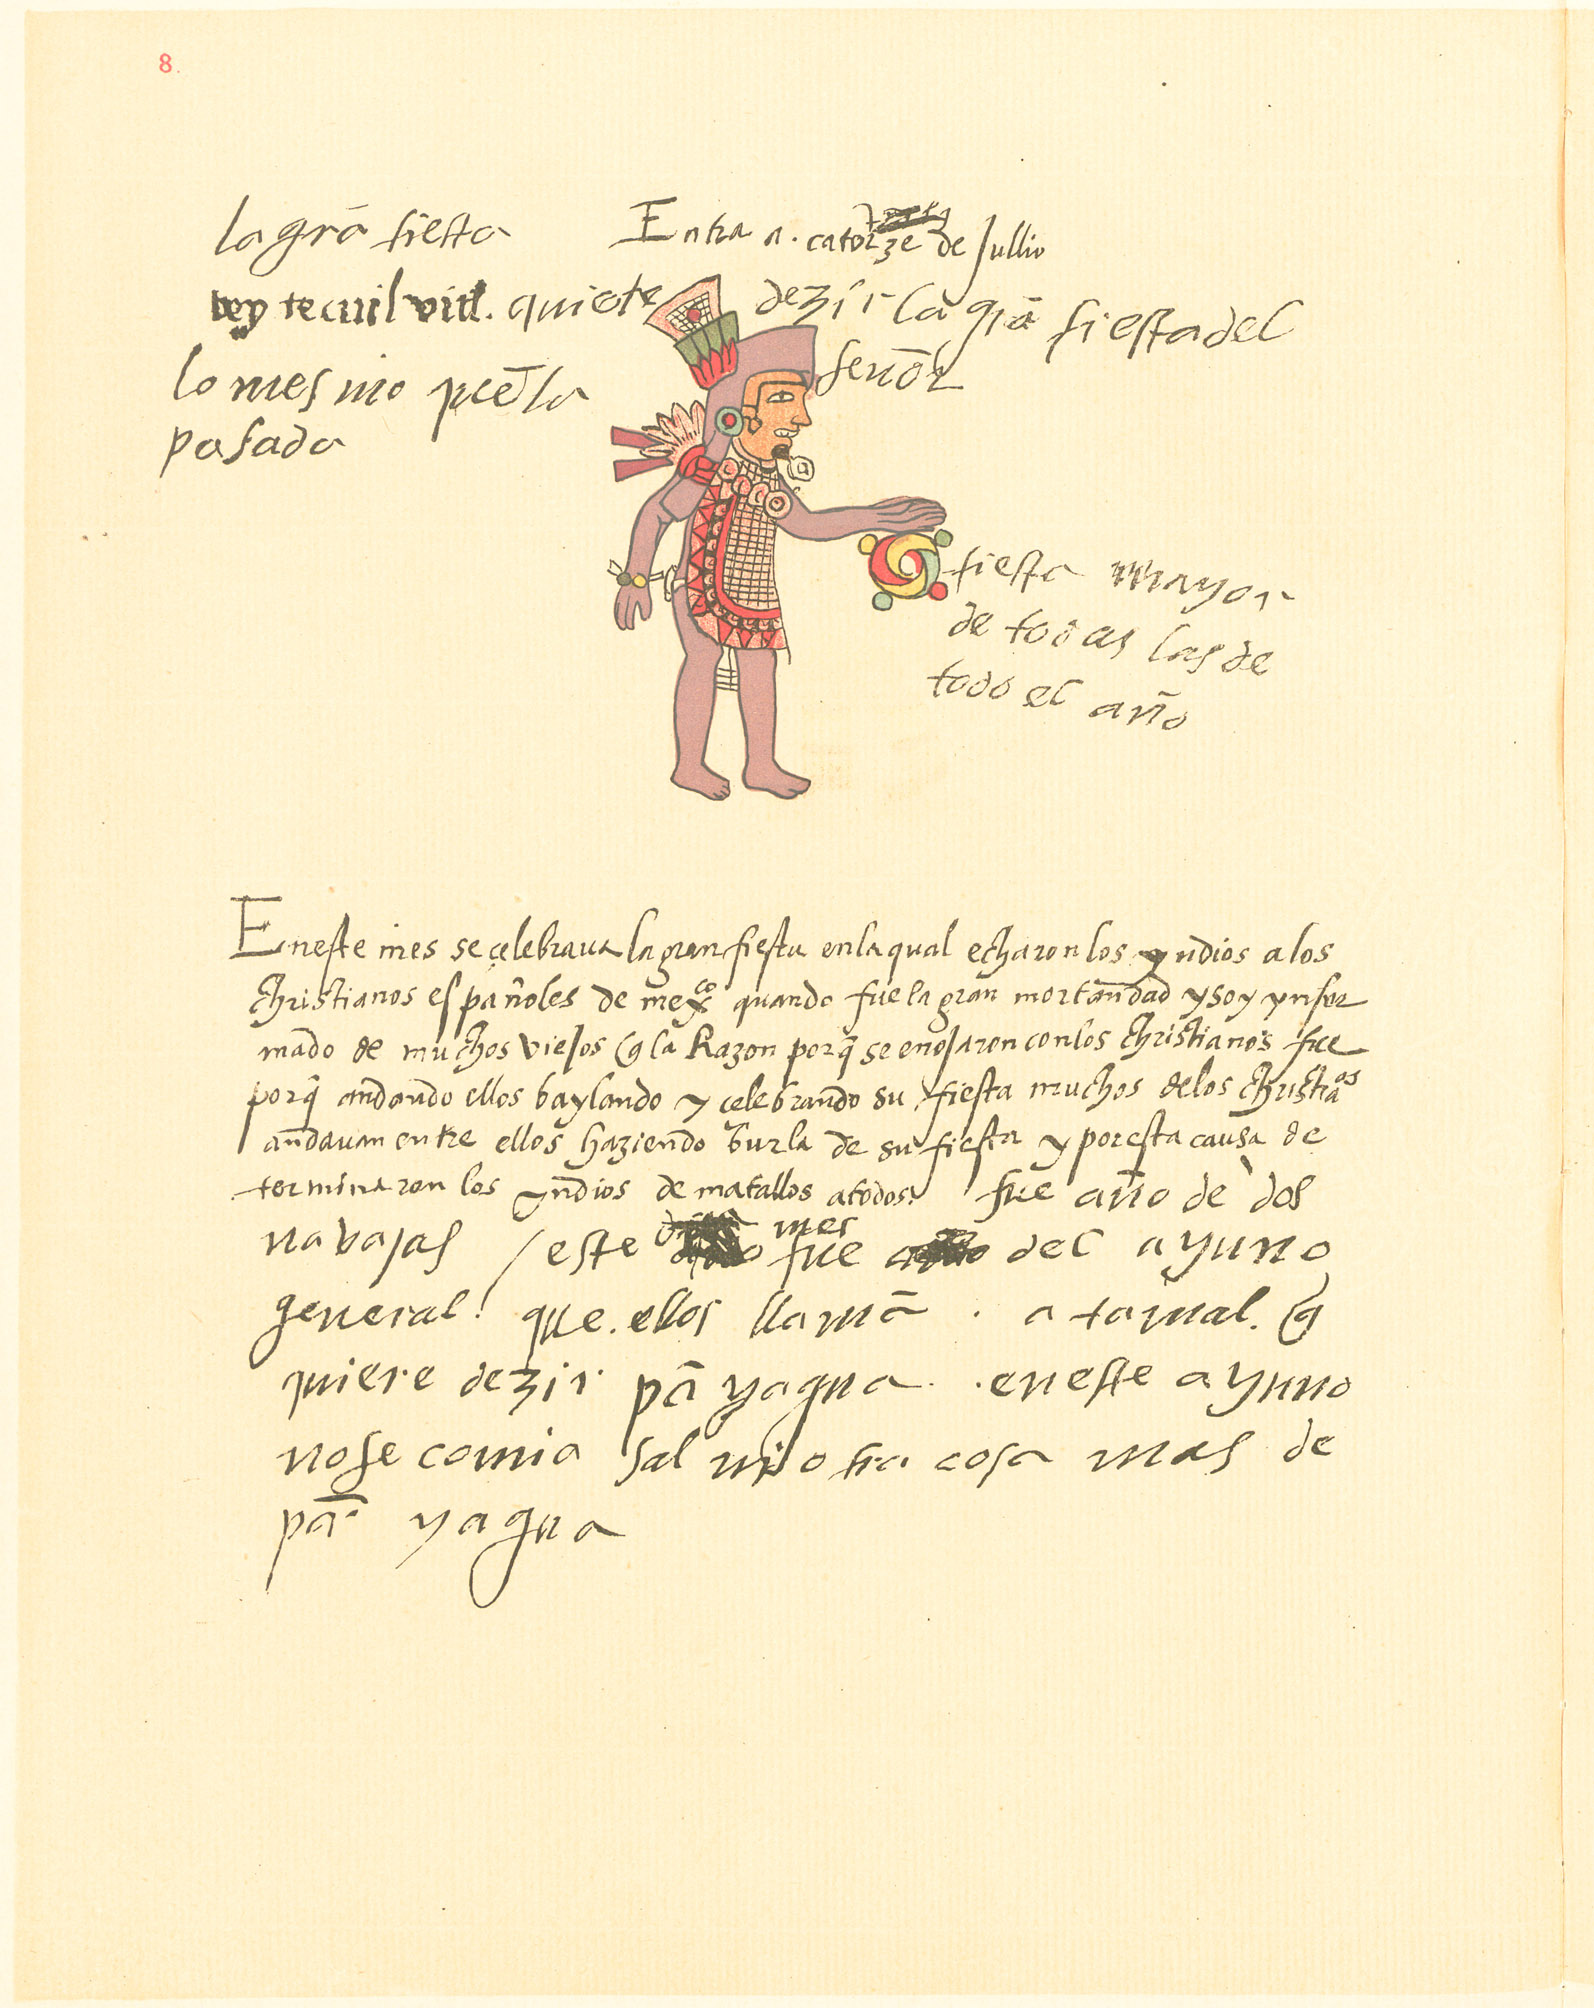 8
la grā fiesta
Entra a. catorze de Jullio
vey tecuil vitl. quiere dezir la grā fiesta del
señor
lo mesmo que la
pasada
fiesta mayor
de todas las de
todo el año
En este mes se çelebraua la gran fiesta en la qual echaron los yndios a los
christianos españoles de mexco quando fue la gran mortandad y soy ynfor
mado de muchos viejos q la Razon porq̄ se enojaron con los christianos fue
porq̄ andando ellos baylando y çelebrando su fiesta muchos de los christiaos
andauan entre ellos haziendo burla de su fiesta y por esta causa de
terminaron los yndios de matallos a todos. fue año de dos
navajas / este mes fue del ayuno
general. que. ellos llamā . atamal. q
quiere dezir pā y agua. . en este ayuno
no se comia sal ni otra cosa mas de
pā. y agua